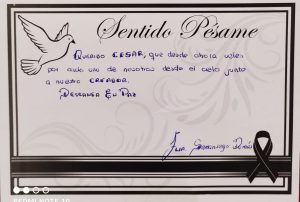 Sentido Pésame
Querido CESAR, que desde ahora veles
por cada uno de nosotros desde el cielo junto
a nuestro CREADOR.
DESCANSA EN PAZ
REDMI NOTE 10